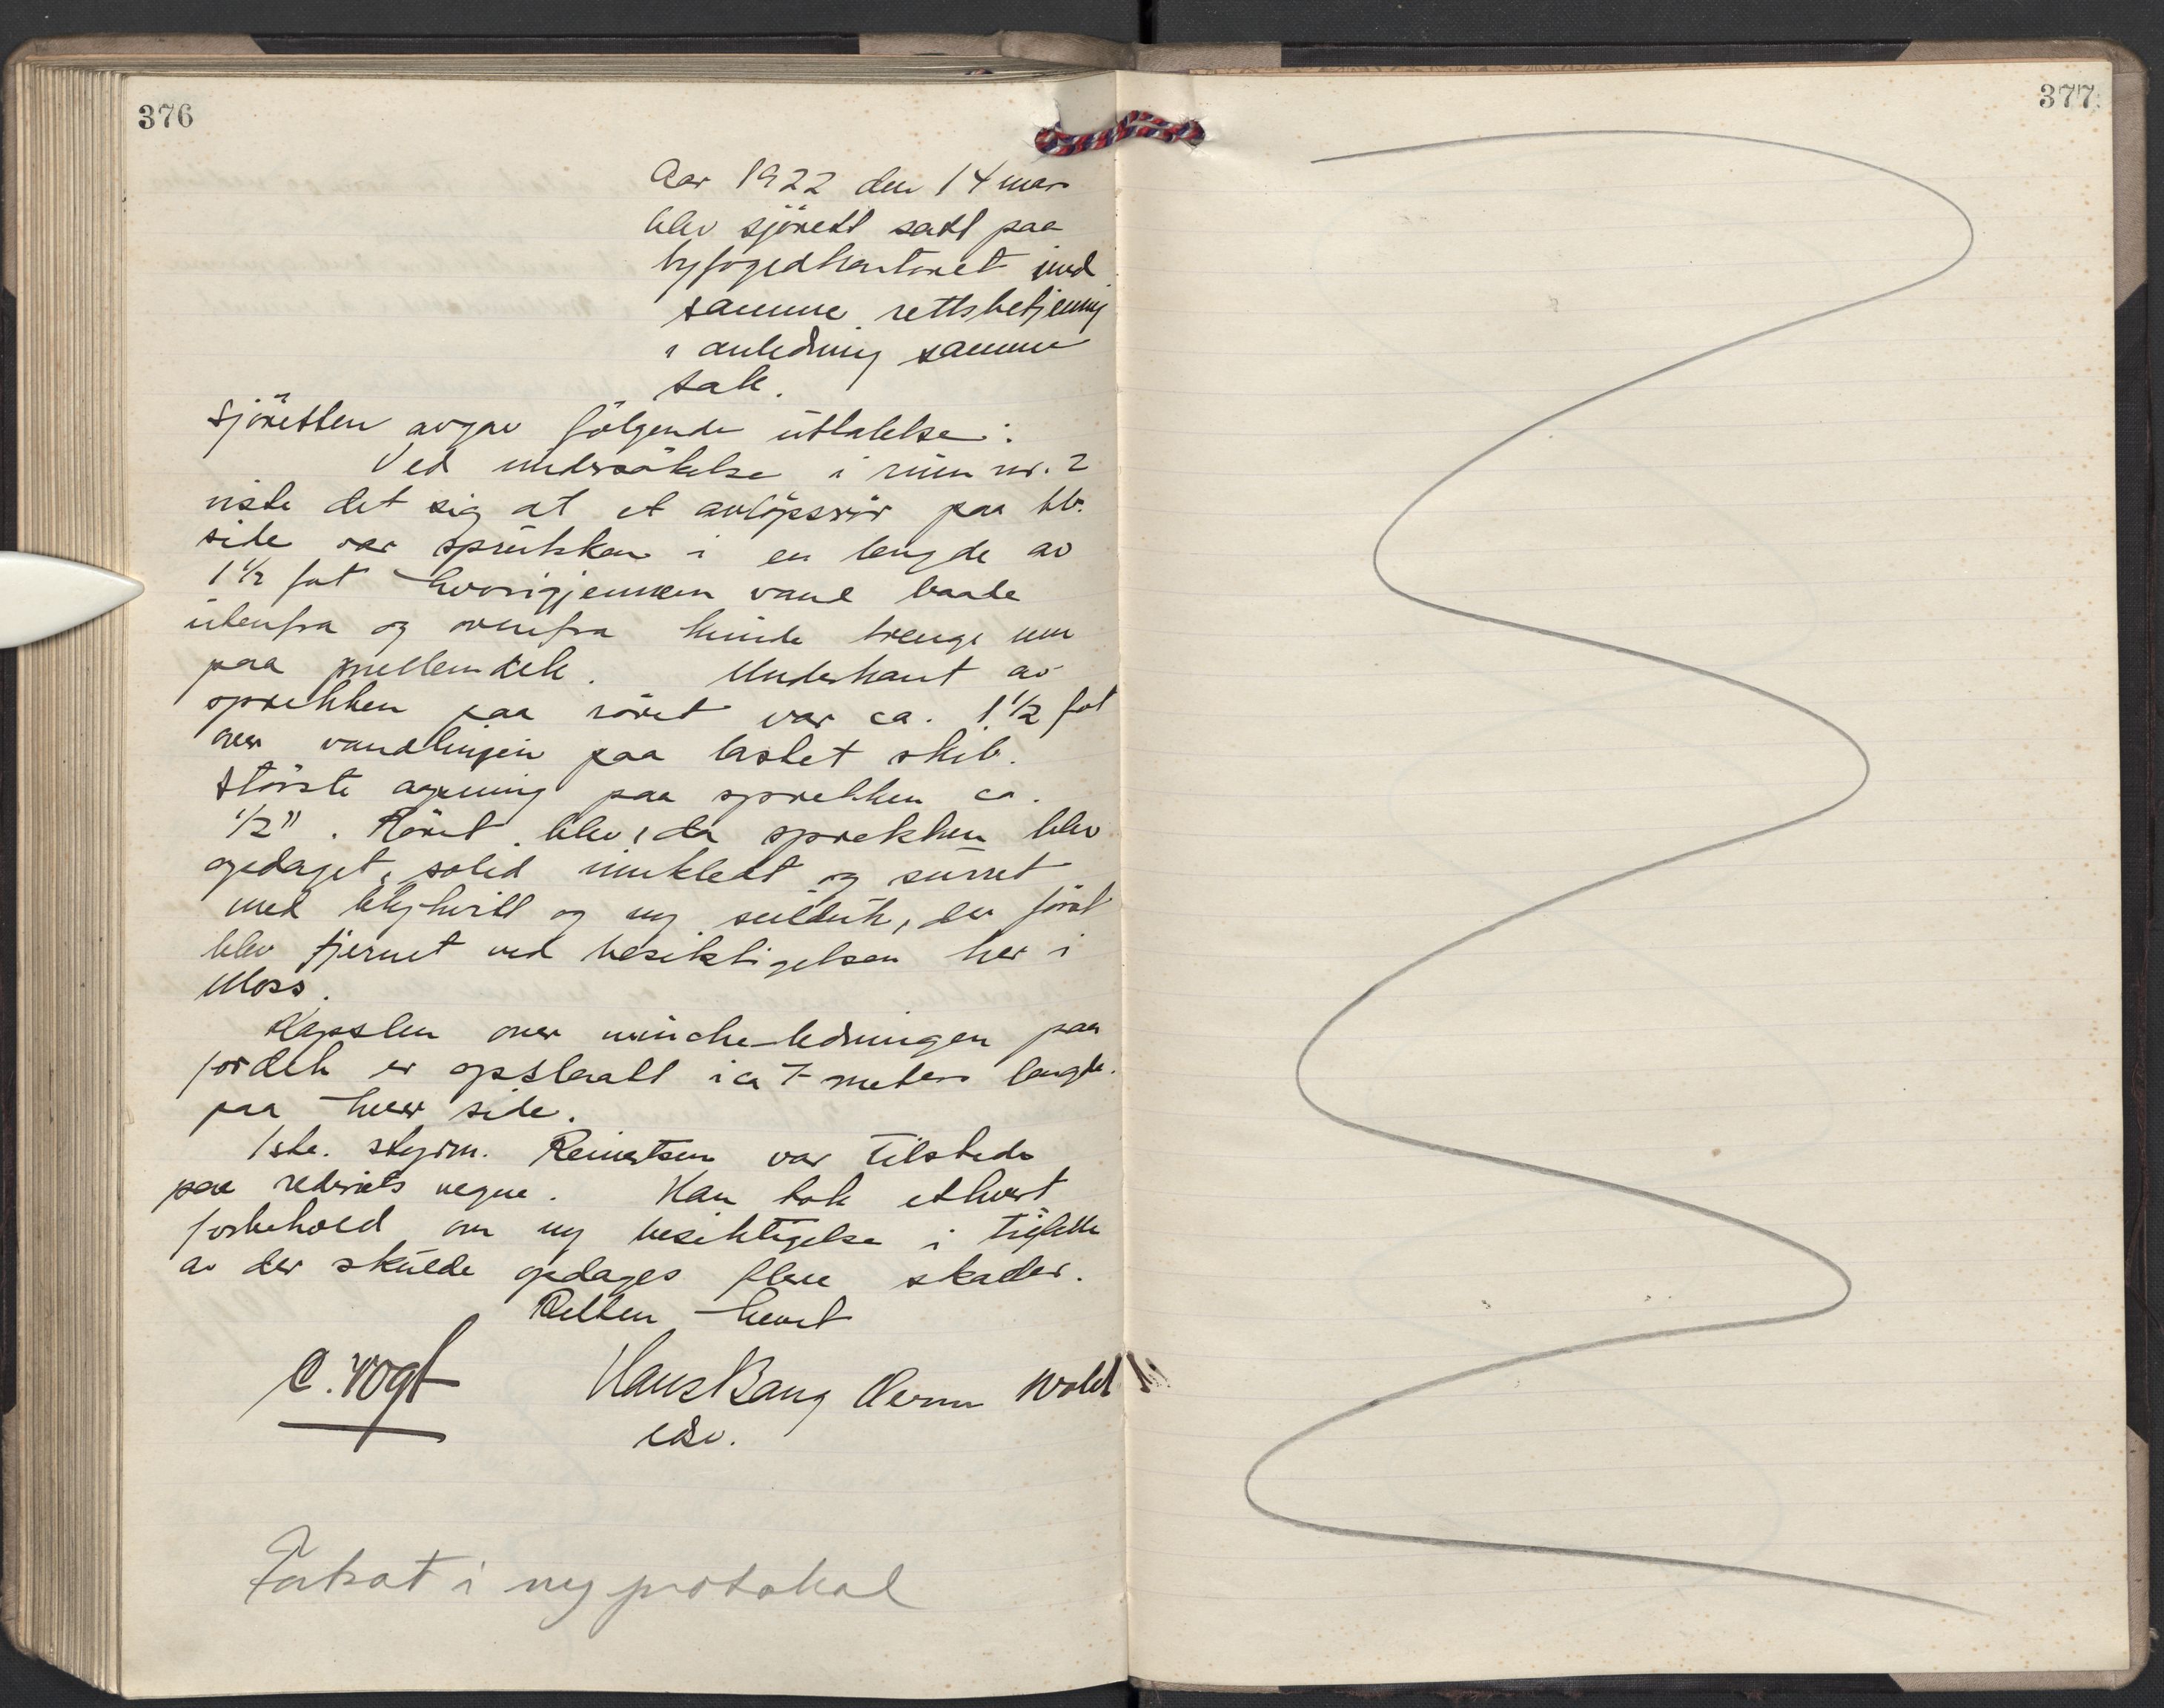 376
Aar 1922 den 14 mars
blev sjörett satt paa
byfogedkontoret med
samme rettsbetjening
i anledning samme
sak.
Sjöretten avgav fölgende uttalelse:
Ved undersökelse i rum nr. 2
viste det sig at et avlöpsrör paa bb.
side var sprukken i en lengde av
1 1/2 fot hvorigjennem vand baade
utenfra og ovenfra kunde trenge inn
paa mellemdek. Underkant av
sprekken paa röret var ca. 1 1/2 fot
over vandlinjen paa lastet skib.
Störste aapning paa sprekken ca.
1/2". Röret blev, da sprekken blev
opdaget, solid innkledt og surret
med blyhvitt og ny seilduk, der först
blev fjernet ved besiktigelsen her i
Moss.
Kapslen over winche-ledningen paa
fordek er opslaatt i ca 7 meters lengde
paa hver side.
1ste. styrm. Reinertsen var tilstede
paa rederiets vegne. Han tok ethvert
forbehold om ny besiktigelse i tilfelle
av der skulde opdages flere skader.
Retten hevet
C. Vogt Hans Bang Herm Wold
edv.
Fortsat i ny protokol
377